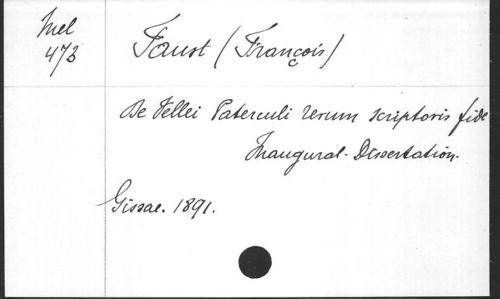 Mel
473
Faust (François)
De Vellei Paterculi rerum scriptoris fide
Inaugural-Dissertation.
Gissae. 1891.